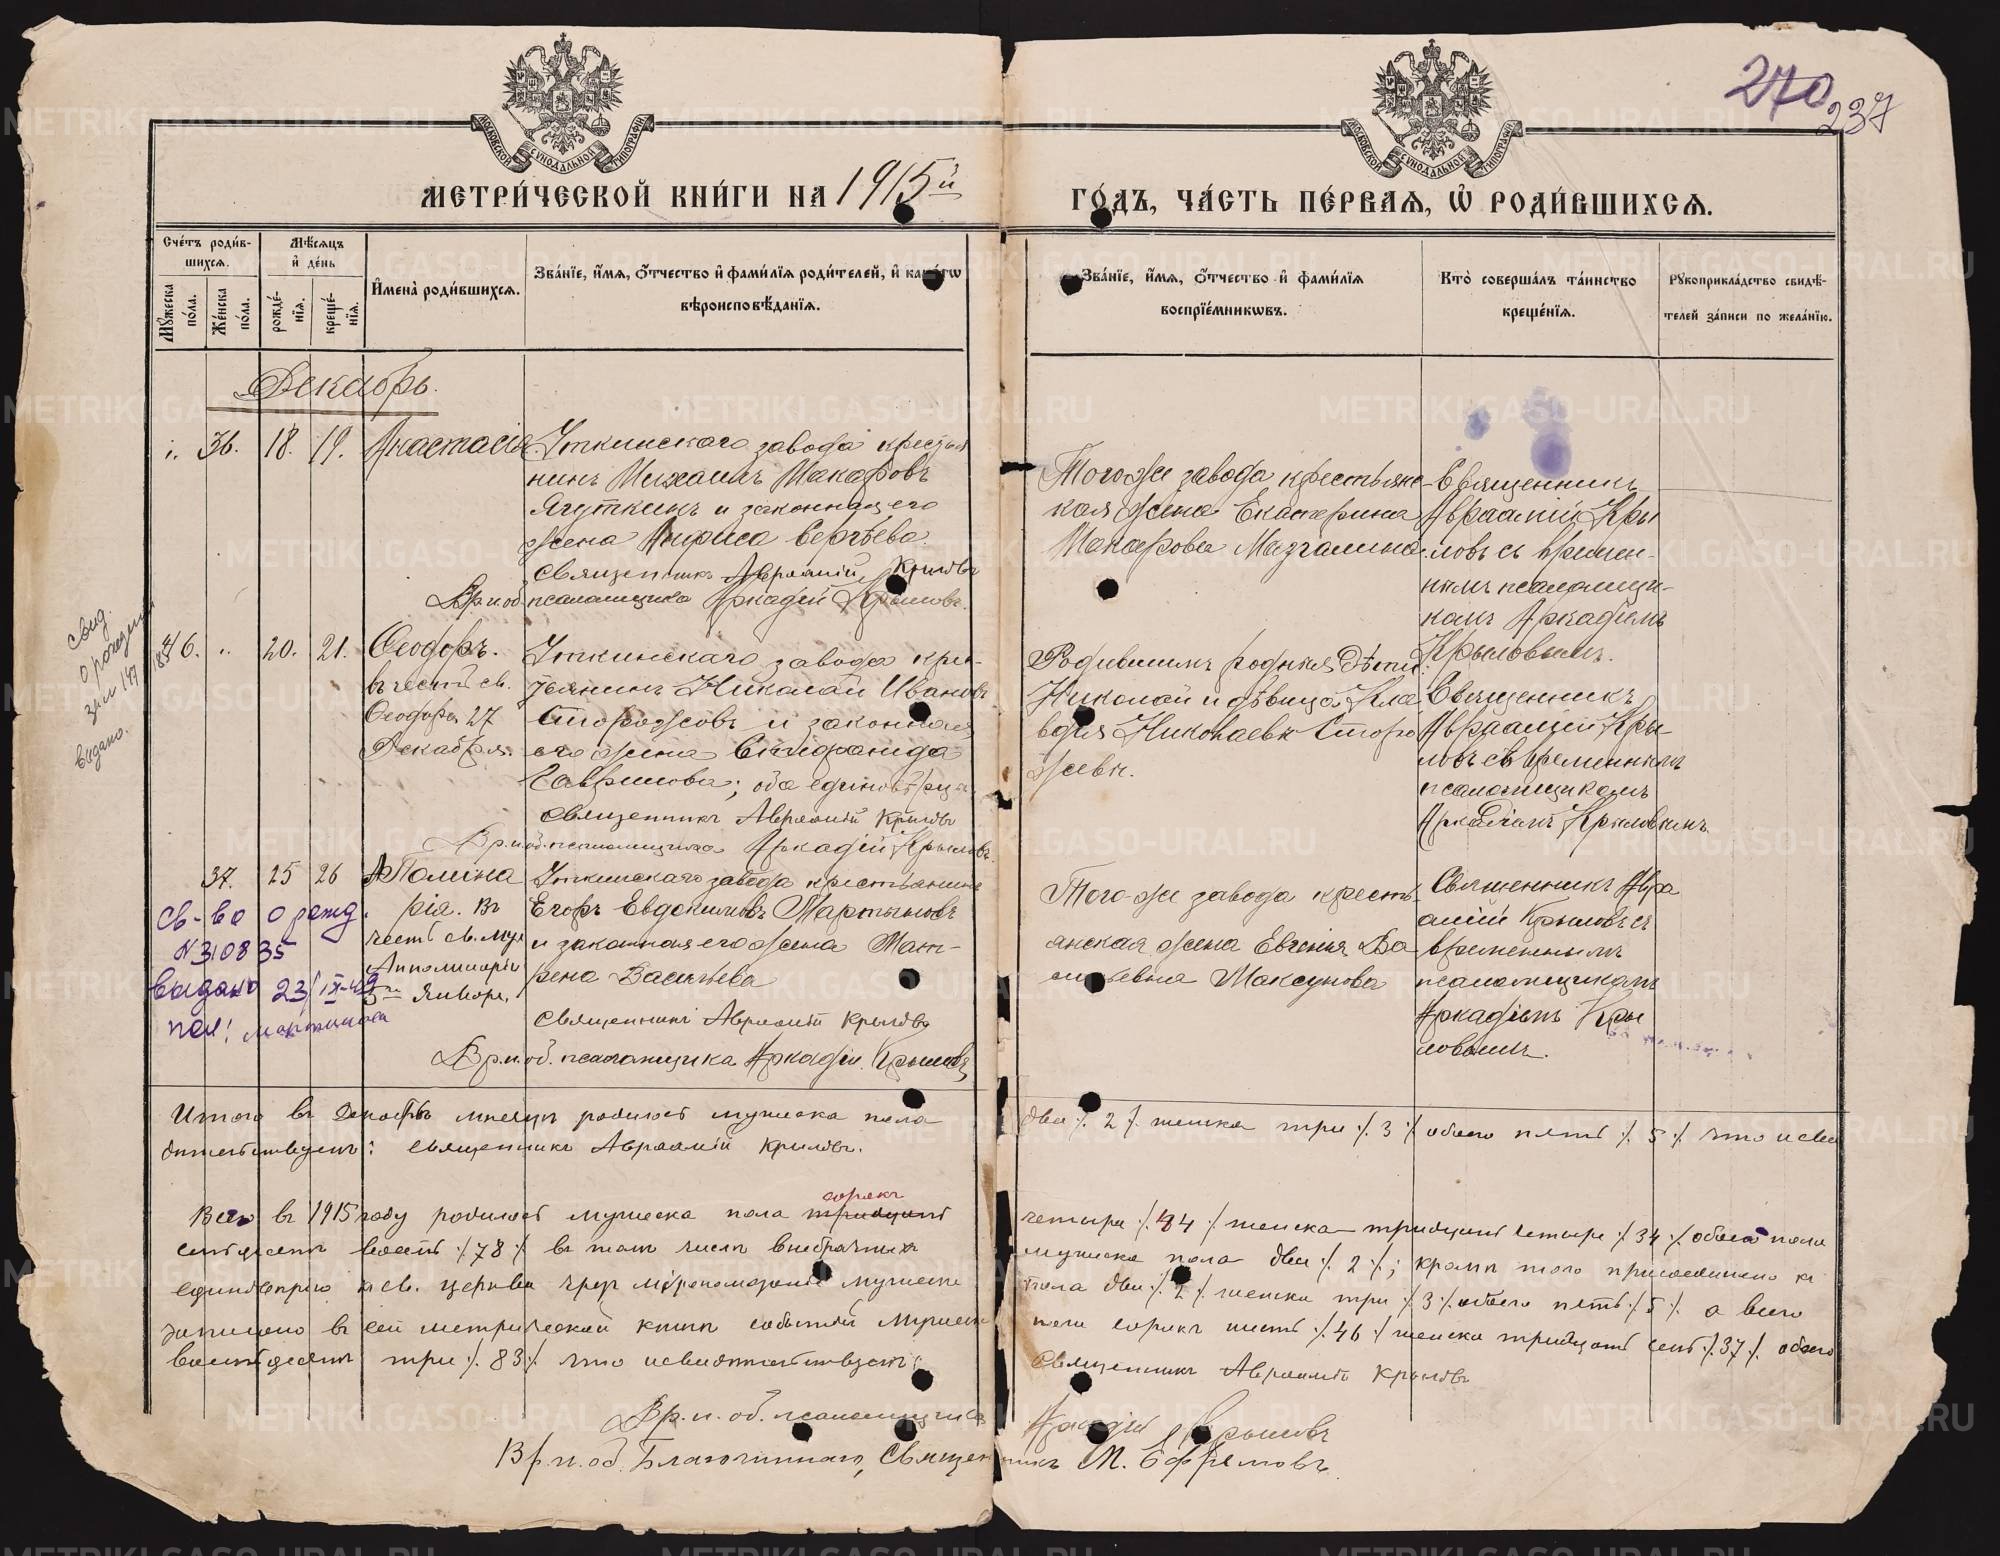 270
237
МОСКОВСКОЙ СѴНОДАЛЬНОЙ ТИПОГРАФИИ
МОСКОВСКОЙ СѴНОДАЛЬНОЙ ТИПОГРАФИИ
МЕТРИ́ЧЕСКОЙ КНИ́ГИ НА 1915й
ГО́ДЪ, ЧА́СТЬ ПЕ́РВАѦ, Ѡ҆ РОДИ́ВШИХСѦ.
Сче́тъ роди́вшихсѧ.
Мꙋ́жеска по́ла.
Же́нска по́ла.
Мѣ́сѧцъ и҆ де́нь
рожде́нїѧ.
креще́нїѧ.
И҆мена̀ роди́вшихсѧ.
Зва́нїе, и҆́мѧ, ѻ҆́тчество и҆ фами́лїѧ роди́телей, и҆ како́гѡ
вѣроисповѣ́данїѧ.
Зва́нїе, и҆́мѧ, ѻ҆́тчество и҆ фами́лїѧ
воспрїе́мникѡвъ.
Кто̀ соверша́лъ та́инство
креще́нїѧ.
Рꙋкоприкла́дство свидѣ́-
телей за́писи по жела́нїю.
Декабрь.
36. 18. 19. Анастасія
Уткинскаго завода крестья
нинъ Михаилъ Макаровъ
Ягуткинъ и законная его
жена Лариса Сергѣева
Священникъ Авраамій Крыловъ
Вр. и. об. псаломщика Аркадій Крыловъ.
Того же завода крестьянс
кая жена Екатерина
Макарова Мазгалина.
Священникъ
Авраамій Кры
ловъ съ времен-
нымъ псаломщи-
комъ Аркадіемъ
Крыловымъ.
свид.
о рожден
выдано.
46. " 20. 21. Ѳеодоръ.
въ честь св.
Ѳеодора 27
Декабря.
Уткинскаго завода крес-
тьянинъ Николай Ивановъ
Сторожовъ и законная
его жена
Гаврилова; оба единовѣрцы
Священникъ Авраамій Крыловъ
Вр. и. об. псаломщика Аркадій Крыловъ.
Родившимъ родныя дѣти
Николай и дѣвица Кла
вдія Николаевы Сторо
жевы.
Священникъ
Авраамій Кры-
ловъ съ временнымъ
псаломщикомъ
Аркадіемъ Крыловымъ.
37. 25 26 Аполлина
рія. Въ
честь св. муч
Апполинаріи
5го Января.
Св-во о рожд.
N 310835
выдано 23/IX-49
пол: Мартынова
Уткинскаго завода крестьянинъ
Егоръ Евдокимовъ Мартыновъ
и законная его жена Мат-
рена Васильева
Священникъ Авраамій Крыловъ
Вр. и. об. псаломщика Аркадій Крыловъ
Того-же завода кресть-
янская жена Евгенія Ва
сильевна Максунова
Священникъ Авра
амій Крыловъ съ
временнымъ
псаломщикомъ
Аркадіемъ Кры
ловымъ.
Итого въ Декабрѣ мѣсяцѣ родилось мужеска пола
два ⁒ 2 ⁒ женска три ⁒ 3 ⁒ обоего пять ⁒ 5 ⁒ что и сви
дѣтельствуемъ: священникъ Авраамій Крыловъ.
Всего въ 1915 году родилось мужеска пола тридцать сорокъ
четыре ⁒ 44 ⁒ женска тридцать четыре ⁒ 34 ⁒ обоего пола
семьдесятъ восемь ⁒ 78 ⁒ въ томъ числѣ внебрачныхъ
мужеска пола два ⁒ 2 ⁒; кромѣ того присоединено къ
единовѣрію и св. церкви чрез мѵропомазаніе мужеска
пола два ⁒ 2 ⁒ женска три ⁒ 3 ⁒ обоего пять ⁒ 5 ⁒ а всего
записано въ сей метрической книгѣ событій мужеска
пола сорокъ шесть ⁒ 46 ⁒ женска тридцать семь ⁒ 37 ⁒ обоего
восемьдесятъ три ⁒ 83 ⁒ что и свидѣтельствуемъ:
Священникъ Авраамій Крыловъ
Вр. и. об. псаломщика Аркадій Крыловъ
Вр. и. об. Благочиннаго, Священникъ М. Ефремовъ.
METRIKI.GASO-URAL.RU